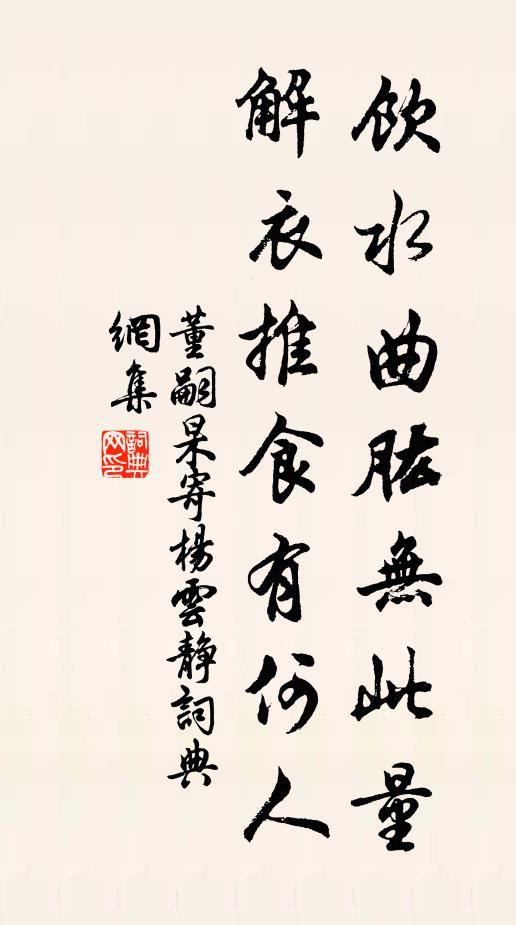 飲水曲肱無此量
解衣推食有何人
董嗣杲寄楊雲靜詞典
網集
詞典
网印